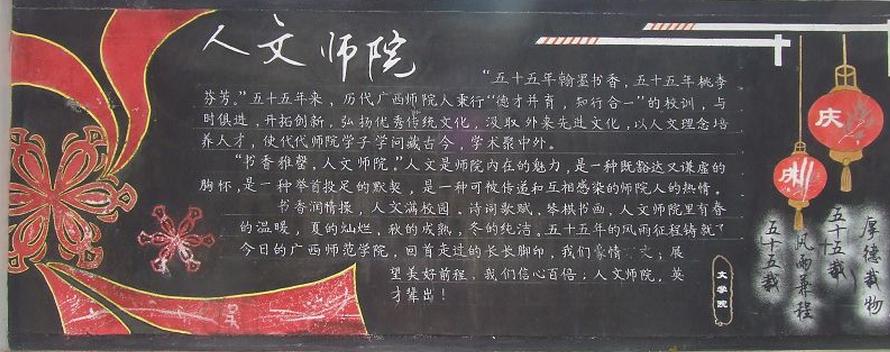 人文师院
“五十五年翰墨书香，五十五年桃李
芬芳。”五十五年来，历代广西师院人秉行“德才并育，知行合一”的校训，与
时俱进，开拓创新，弘扬优秀传统文化，汲取外来先进文化，以人文理念培
养人才，使代代师院学子学问藏古今，学术聚中外。
“书香雅韾，人文师院。”人文是师院内在的魅力，是一种既豁达又谦虚的
胸怀，是一种举首投足的默契，是一种可被传递和互相感染的师院人的热情。
书香润情操，人文满校园。诗词歌赋、琴棋书画，人文师院里有春
的温暖，夏的灿烂，秋的成熟，冬的纯洁。五十五年的风雨征程铸就了
今日的广西师范学院，回首走过的长长脚印，我们豪情 文；展
望美好前程，我们信心百倍；人文师院，英
才辈出！
文学院
庆
厚德载物
五十五载
风雨兼程
五十五载